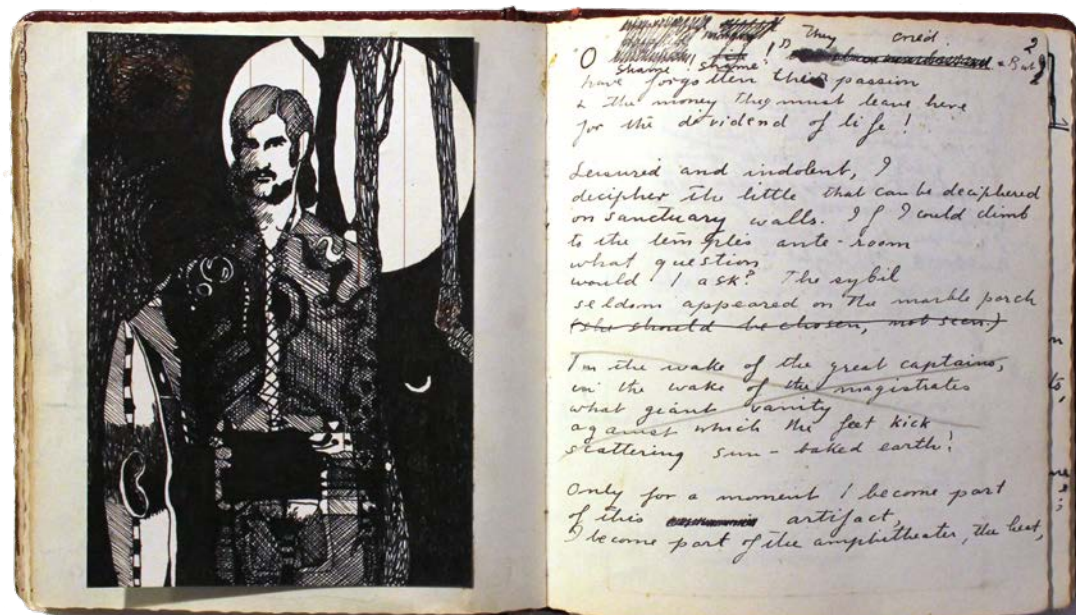 They cried
2
O shame, shame!" But
have forgotten their passion
& the money they must leave here
for the dividend of life!
Leisured and indolent, I
decipher the little that can be deciphered
on sanctuary walls. If I could climb
to the temples ante-room
what question
would I ask? The sybil
seldom appeared on the marble porch
(she should be chosen, not seen.)
In the wake of the great captains,
in the wake of the magistrates
what giant vanity
against which the feet kick
scattering sun-baked earth!
Only for a moment I become part
of this artifact,
I become part of the amphitheater, the heat,